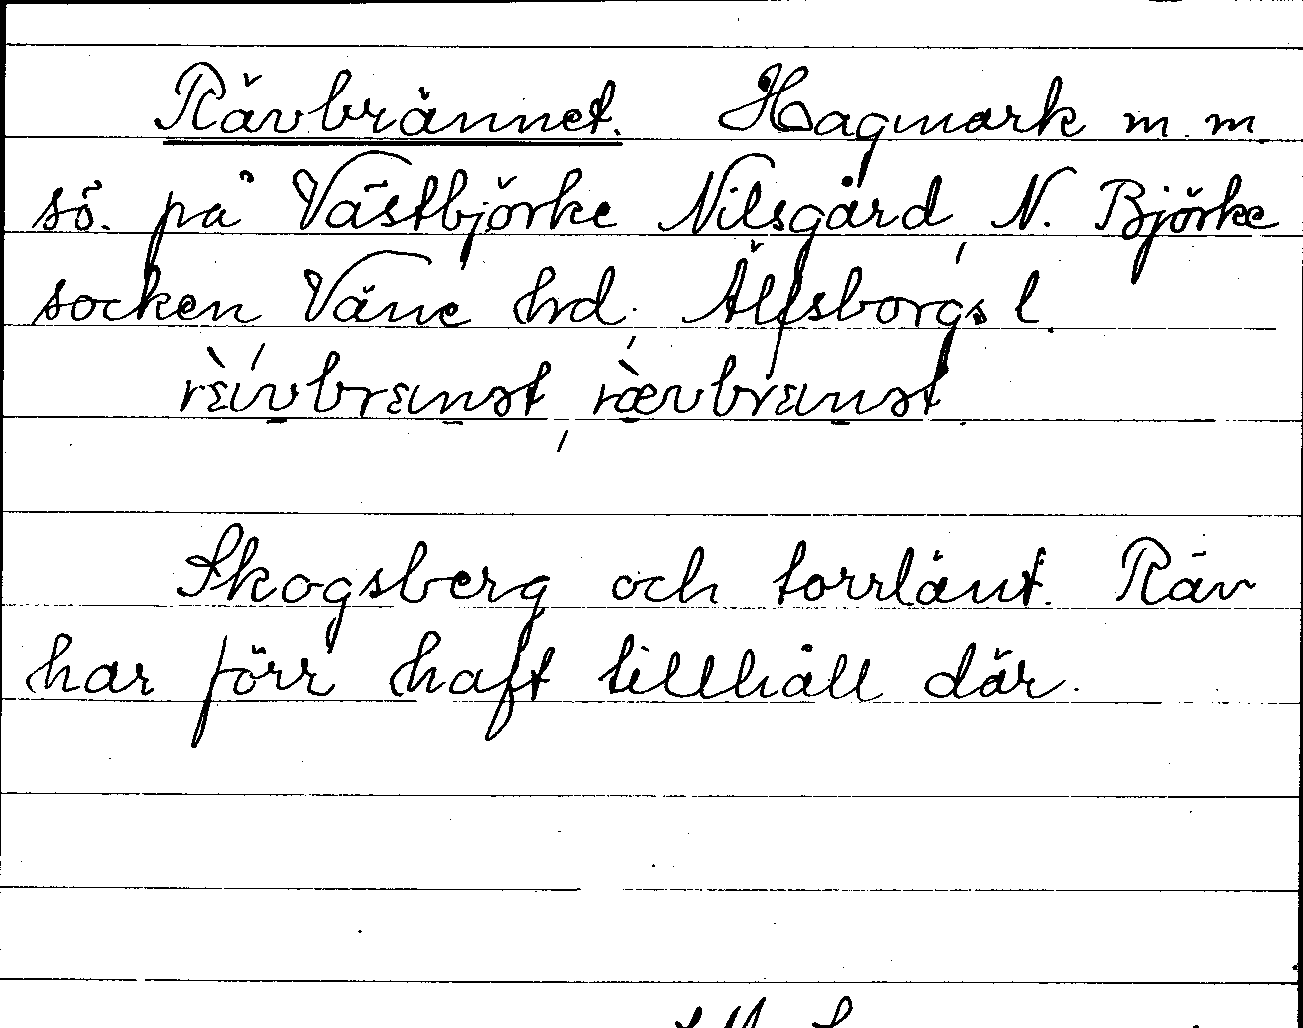 Rävbrännet. Hagmark m. m.
sö. på Västbjörke Nilsgård, N. Björke
socken, Väne hrd, Älfsborgs l.
Skogsberg och torrlänt. Räv
har förr haft tillhåll där.